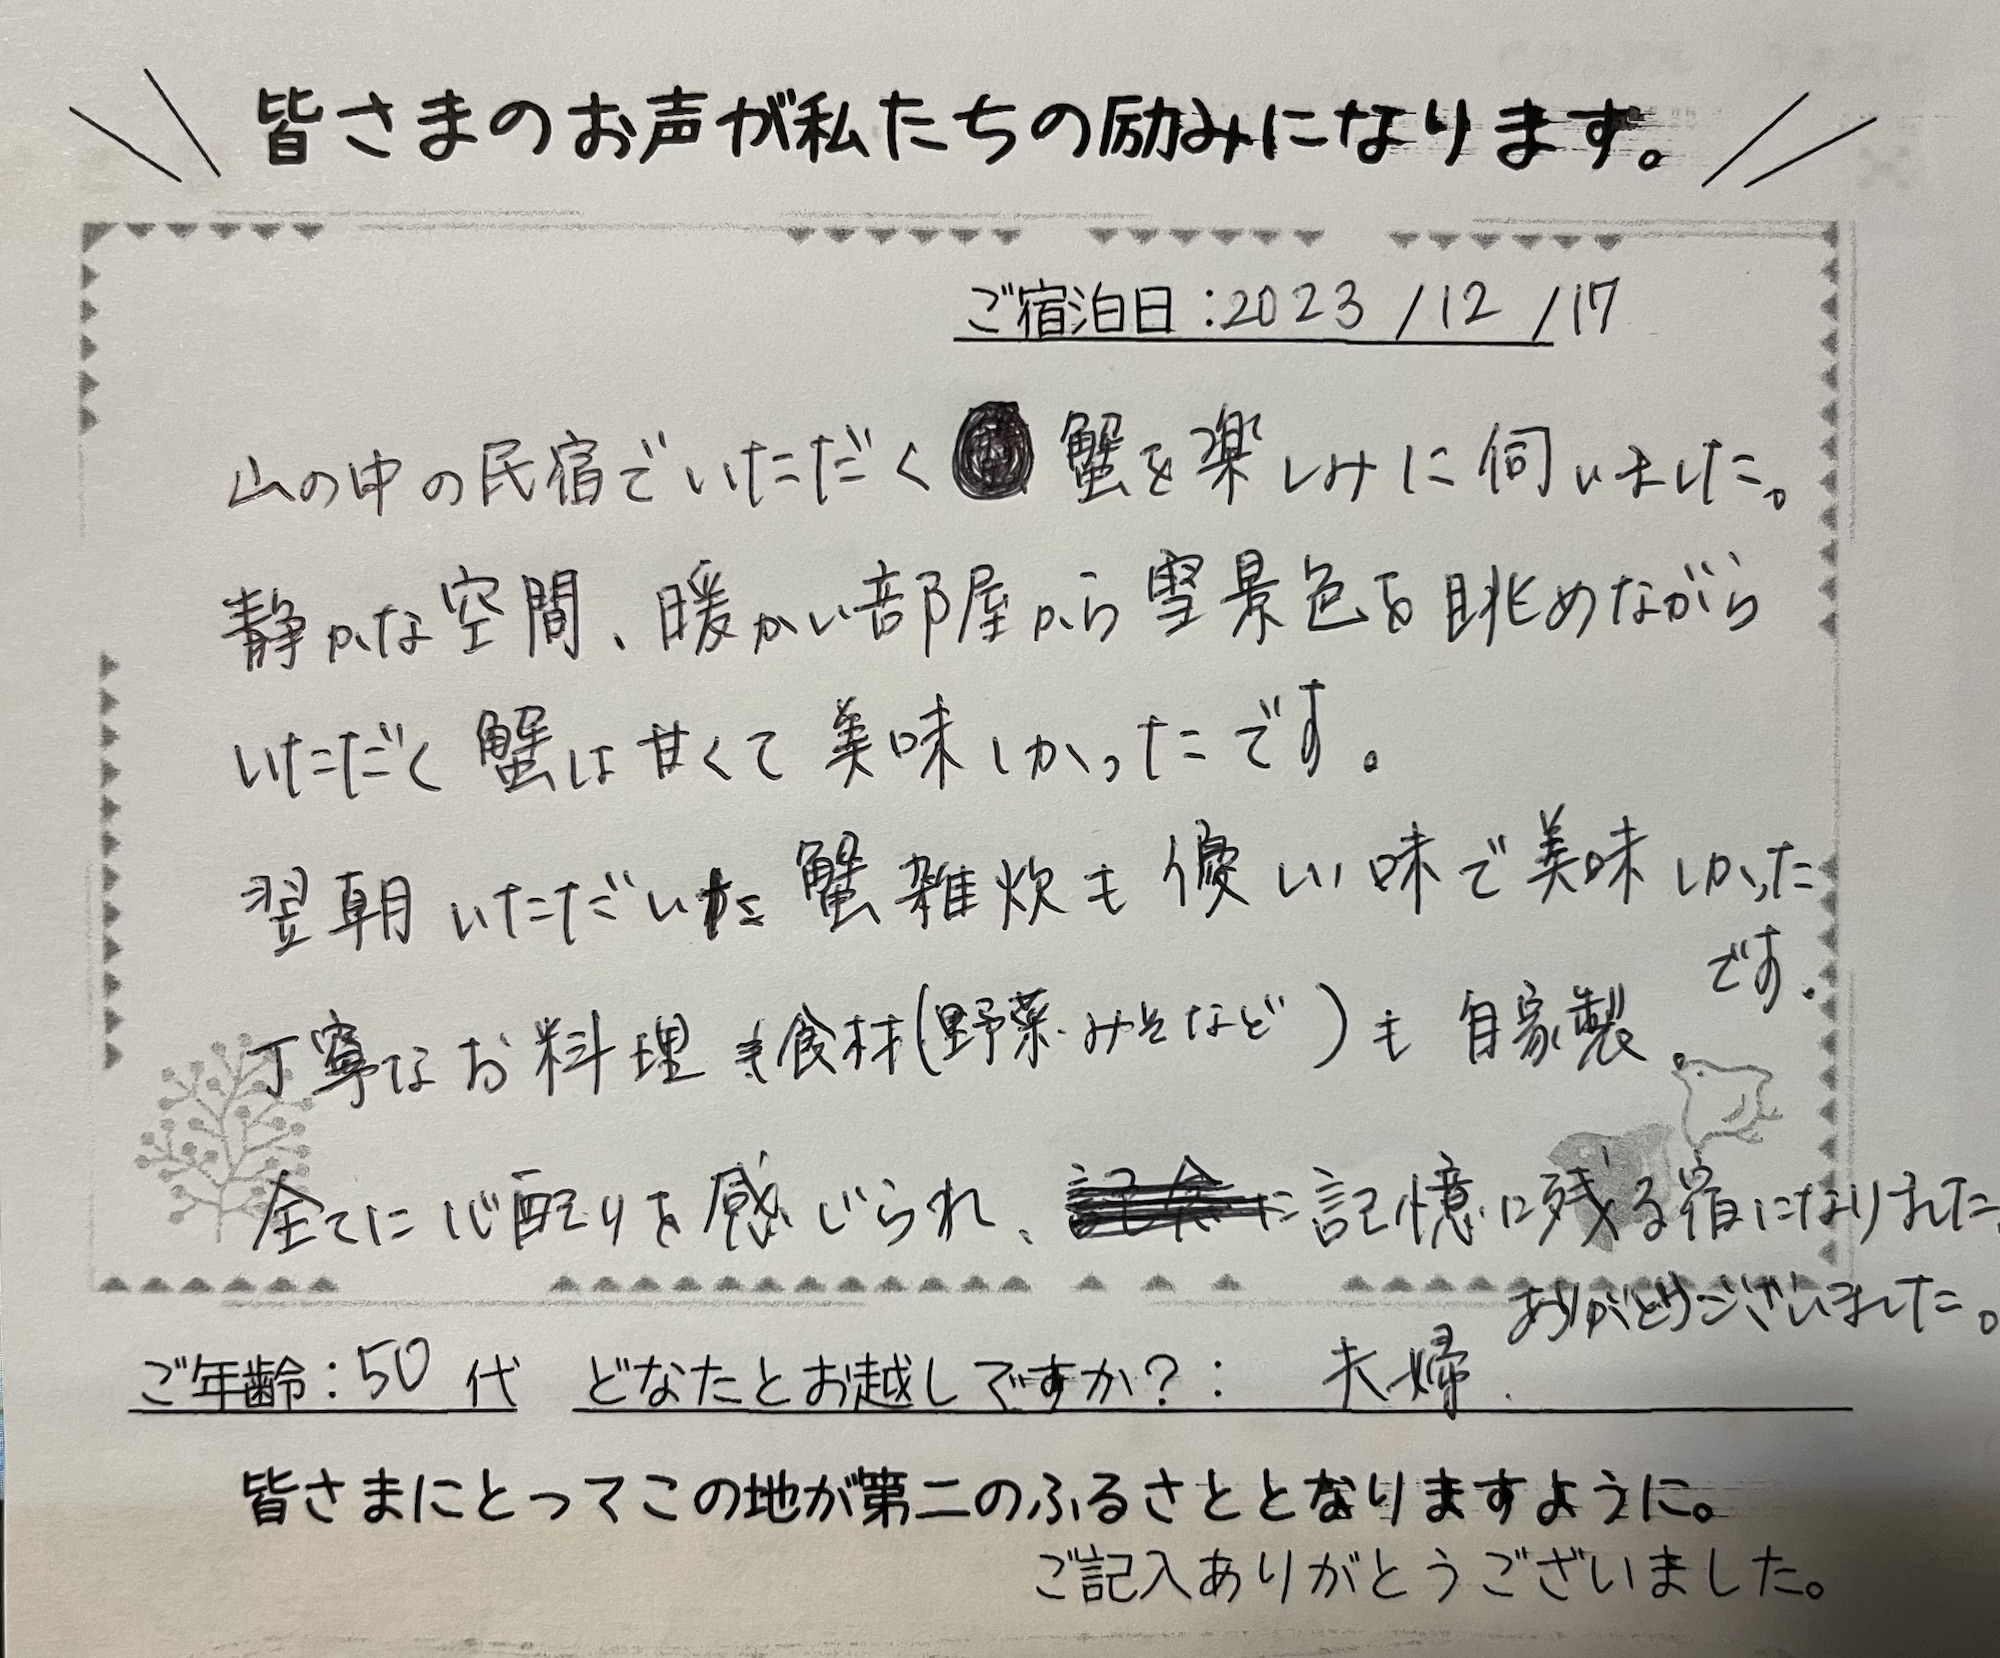 皆さまのお声が私たちの励みになります。
ご宿泊日：2023/12/17
山の中の民宿でいただく 蟹を楽しみに伺いました。
静かな空間、暖かい部屋から雪景色を眺めながら
いただく蟹は甘くて美味しかったです。
翌朝いただいた蟹雑炊も優しい味で美味しかった
です。
丁寧なお料理、食材(野菜・みそなど)も自家製
全てに心配りを感じられ、記憶に残る宿になりました。
ありがとうございました。
ご年齢：50代 どなたとお越しですか？： 夫婦.
皆さまにとってこの地が第二のふるさととなりますように。
ご記入ありがとうございました。